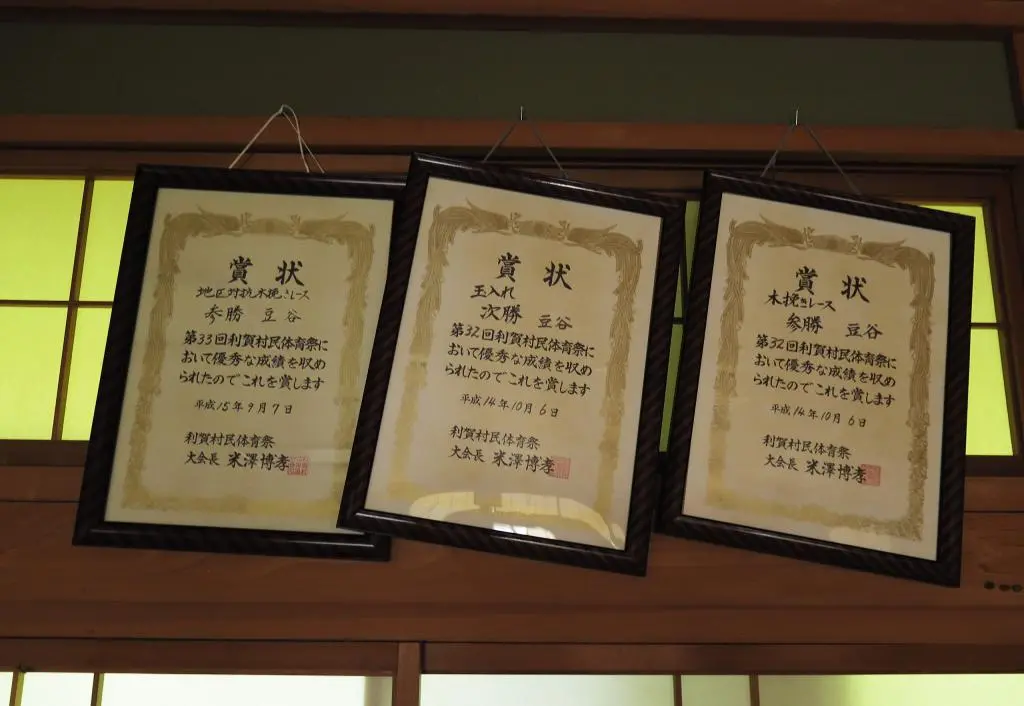 賞状
地区対抗木挽きレース
参勝 豆谷
第33回利賀村民体育祭に
おいて優秀な成績を収め
られたのでこれを賞します
平成15年9月7日
利賀村民体育祭
大会長 米澤博孝
賞状
玉入れ
次勝 豆谷
第32回利賀村民体育祭に
おいて優秀な成績を収め
られたのでこれを賞します
平成14年10月6日
利賀村民体育祭
大会長 米澤博孝
賞状
木挽きレース
参勝 豆谷
第32回利賀村民体育祭に
おいて優秀な成績を収め
られたのでこれを賞します
平成14年10月6日
利賀村民体育祭
大会長 米澤博孝